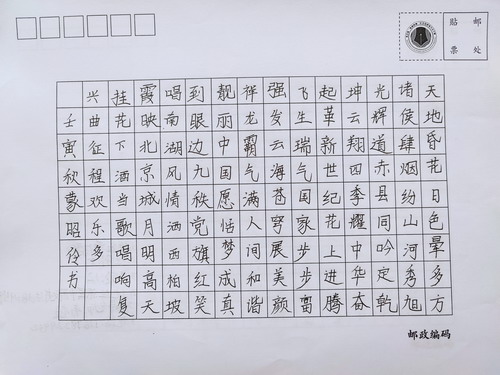 邮政编码
贴票处邮
天地昏花日色晕多方
诸侯肆烟纷山河秀旭
光辉道赤县同吟定乾
坤云翔四季耀中华奋
起革新世纪花上进腾
飞生瑞气国家步步富
强发云海苍穹展美颜
祥龙霸气满人间和谐
靓丽中国愿恬梦成真
到眼边九秩党旗红笑
唱南湖风情洒西柏坡
霞映北京城月明高天
挂花下酒当歌唱响复
兴曲征程欢乐多
壬寅秋蒙昭伶书